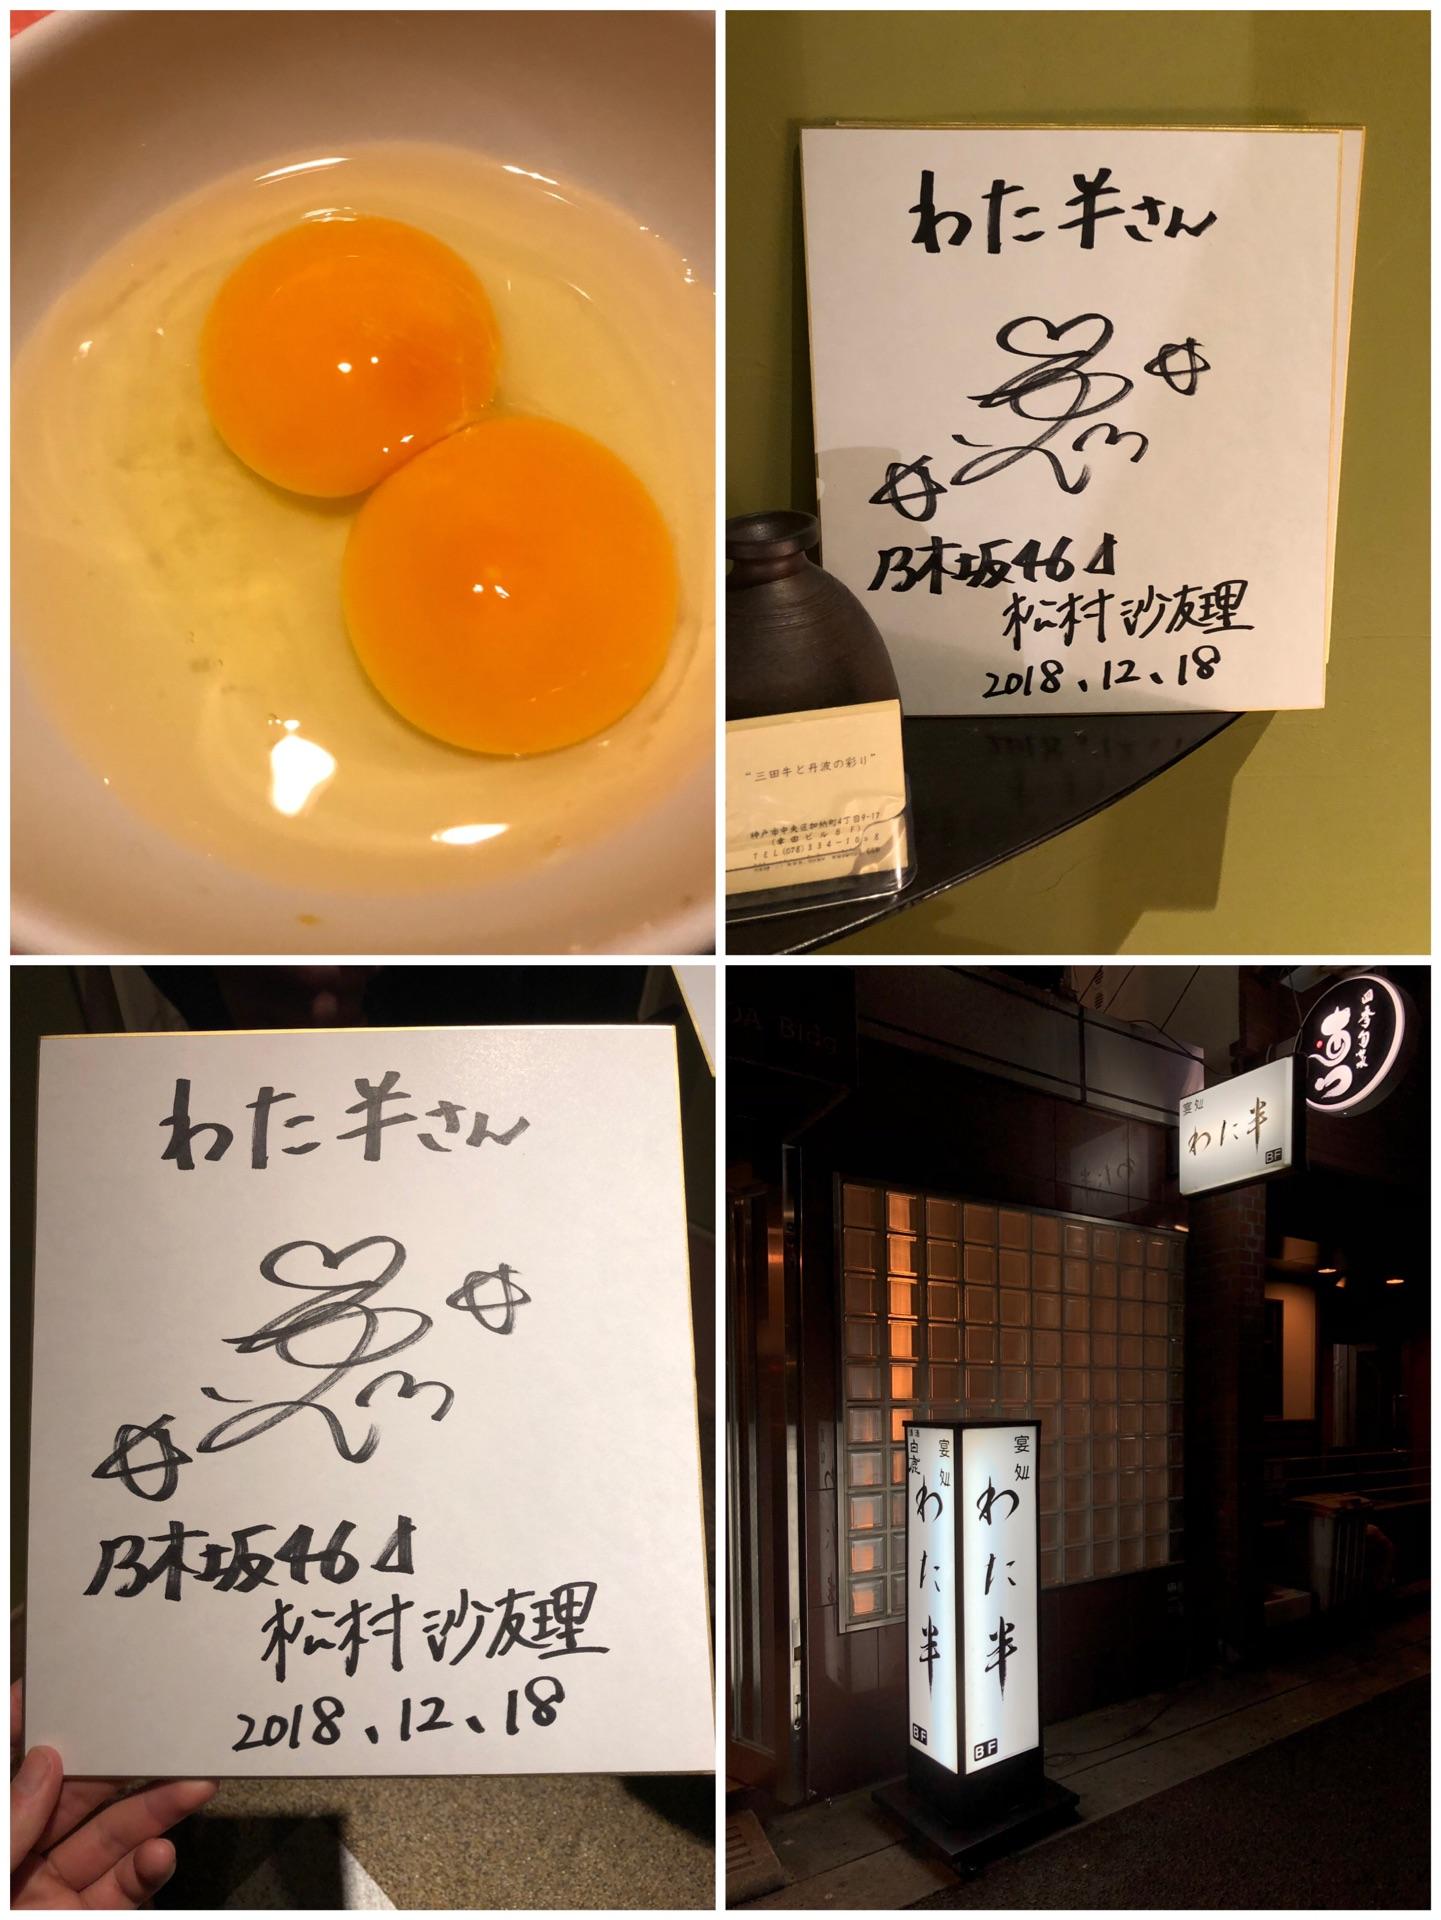 わた半さん
乃木坂46
松村沙友理
2018.12.18
"三田牛と丹波の彩り"
神戸市中央区加納町4丁目9-17
(幸田ビルBF)
わた半さん
乃木坂46
松村沙友理
2018.12.18
DA Bldg
四季旬菜
宴処
わた半
BF
清酒
白鹿
宴処
わた半
BF
宴処
わた半
BF